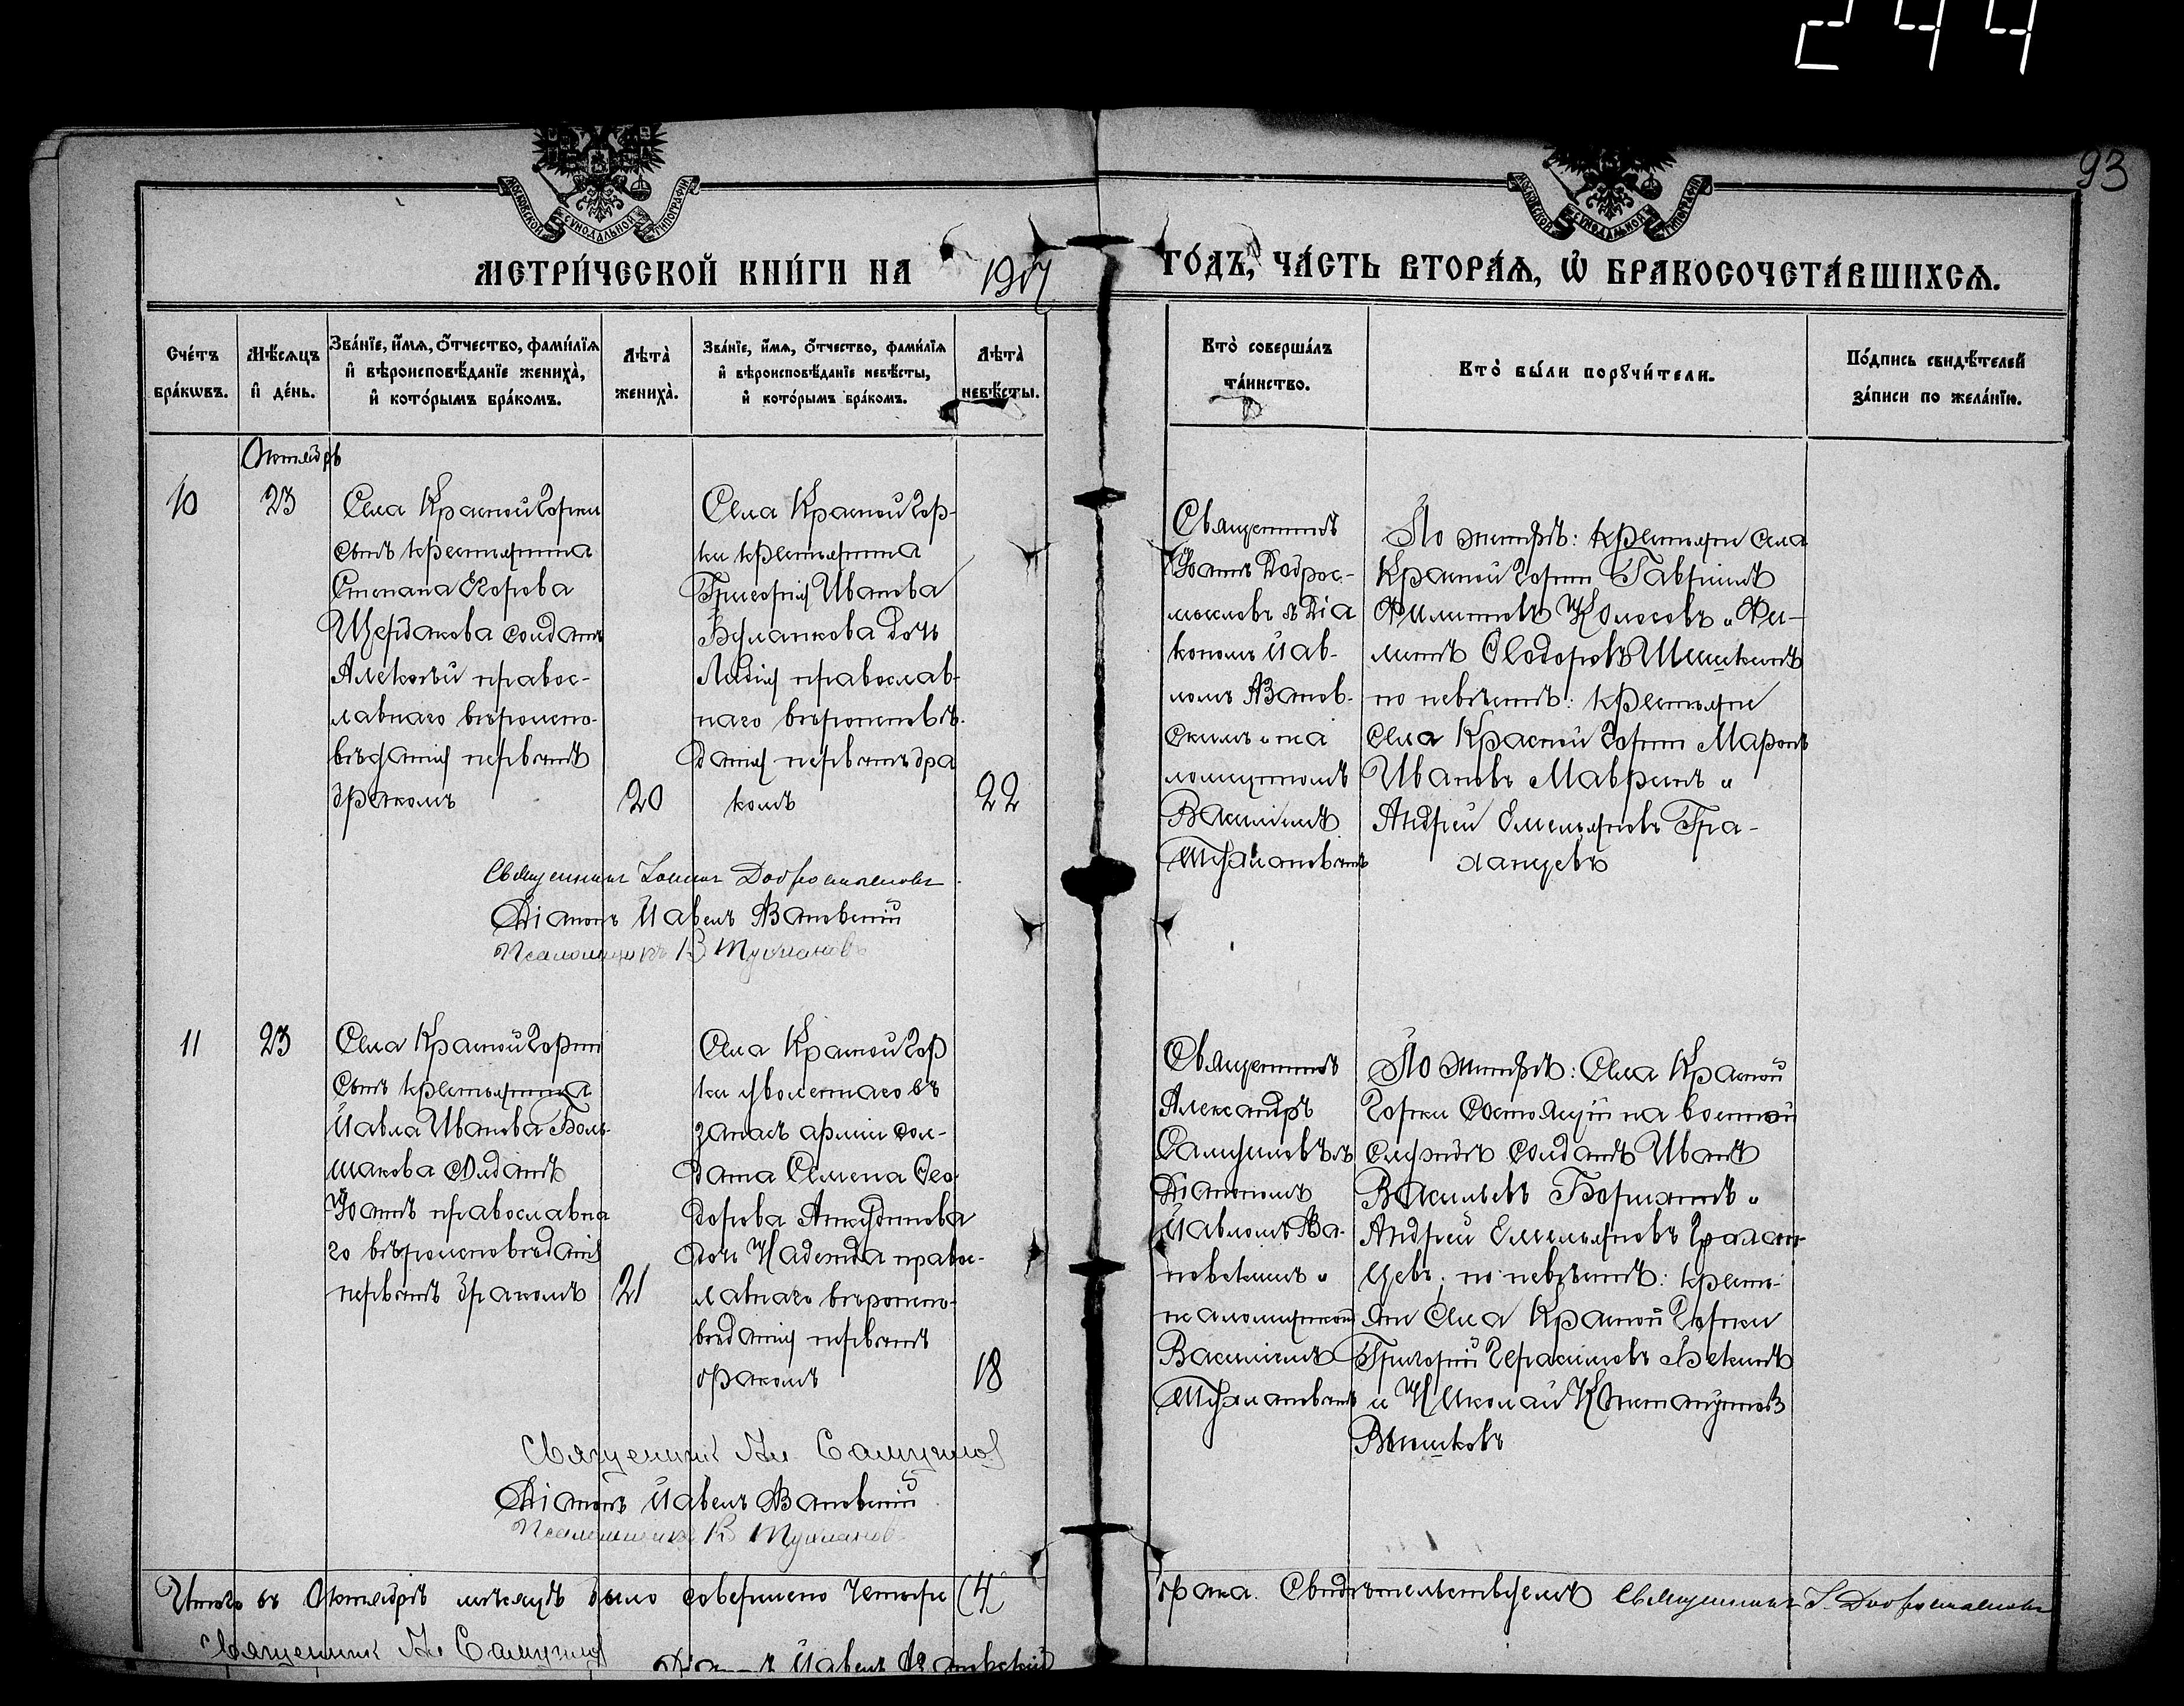 244
93
МОСКОВСКОЙ СѴНОДАЛЬНОЙ ТИПОГРАФІИ
МОСКОВСКОЙ СѴНОДАЛЬНОЙ ТИПОГРАФІИ
МЕТРИ́ЧЕСКОЙ КНИ́ГИ НА 1907 ГО́ДЪ, ЧА́СТЬ ВТОРА́Ѧ, Ѿ БРАКОСОЧЕТА́ВШИХСѦ.
Сче́тъ
бра́кѡвъ.
Мѣ́сѧцъ
и҆ де́нь.
Зва́нїе, и҆́мѧ, ѻ҆́тчество, фами́лїѧ
и҆ вѣроисповѣ́данїе жениха̀,
и҆ кото́рымъ бра́комъ.
Лѣта̀
жениха̀.
Зва́нїе, и҆́мѧ, ѻ҆́тчество, фами́лїѧ
и҆ вѣроисповѣ́данїе невѣ́сты,
и҆ кото́рымъ бра́комъ.
Лѣта̀
невѣ́сты.
Кто̀ соверша́лъ
та́инство.
Кто̀ бы́ли порꙋчи́тели.
По́дпись свидѣ́телей
за́писи по жела́нїю.
Октябрь
10
23
Села Красной Горки
сынъ крестьянина
Степана Егорова
Щербакова солдатъ
Алексѣй правос-
лавнаго вѣроиспо-
вѣданія первымъ
бракомъ
20
Села Красной Гор-
ки крестьянина
Григорія Иванова
Буланкова дочь
Лидія православ-
наго вѣроисповѣ-
данія первымъ бра
комъ
22
Священникъ
Іоаннъ Доброс-
мысловъ съ Діа
кономъ Пав-
ломъ
скимъ и пса
ломщикомъ
Василіемъ
Тумановымъ
По женихѣ: крестьяне села
Красной Горки Гавріилъ
Филипповъ Колосовъ и Фи-
липпъ Ѳеодоровъ Шишкинъ
по невѣстѣ: крестьяне
села Красной Горки Маронъ
Ивановъ Мавринъ и
Андрей Емельяновъ Гра-
ханцевъ
Священникъ Іоаннъ Добросмысловъ
Діаконъ Павелъ
Псаломщикъ В Тумановъ
11
23
Села Красной Горки
сынъ крестьянина
Павла Иванова Боль-
шакова солдатъ
Іоаннъ православна
го вѣроисповѣданія
первымъ бракомъ
21
Села Красной Гор
ки уволеннаго въ
запасъ арміи сол-
дата Семена Ѳео-
дорова Анкудинова
дочь Надежда правос-
лавнаго вѣроиспо-
вѣданія первымъ
бракомъ
18
Священникъ
Александръ
Самуиловъ съ
Діакономъ
Павломъ
и
псаломщикомъ
Василіемъ
Тумановымъ
По женихѣ: Села Красной
Горки состоящій на военной
службѣ солдатъ Иванъ
Васильевъ и
Андрей Емельяновъ Грахан-
цевъ; по невѣстѣ: кресть-
яне Села Красной Горки
Григорій Герасимовъ
и Николай Константиновъ
Священникъ Ал Самуилов
Діаконъ Павелъ
Псаломщикъ В Тумановъ
Итого въ Октябрѣ мѣсяцѣ было совершено четыре (4)
брака. Свидѣтельствуемъ Священникъ І. Добросмысловъ
Священникъ Ал Самуилов
Діаконъ Павелъ